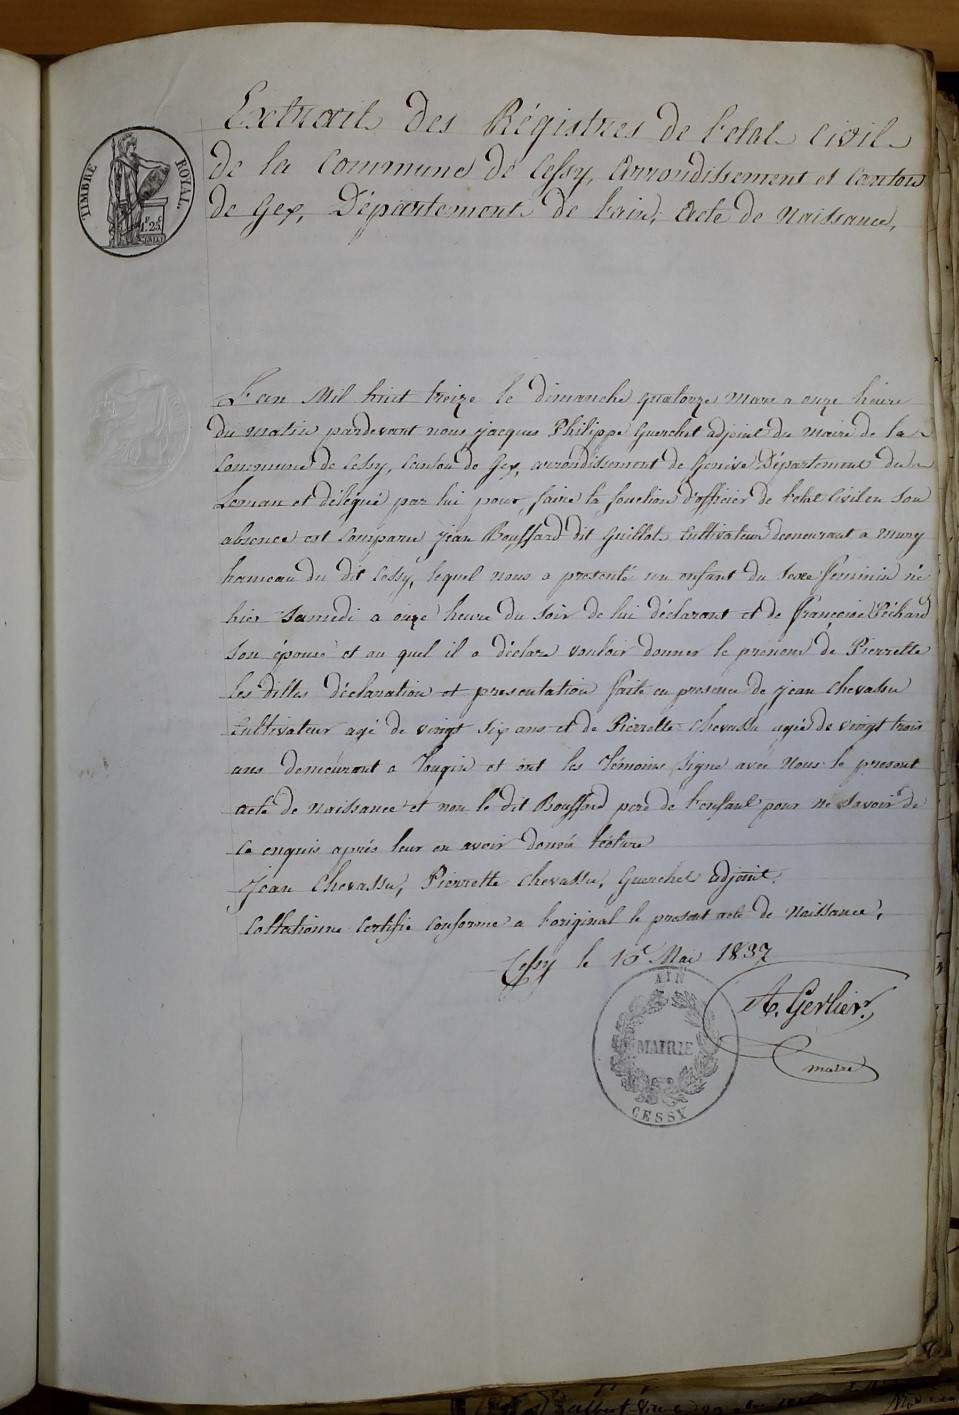 Extrait des Régistres de l'etat Civil
de la Commune de Cessy, Arrondissement et Canton
de Gex, Département de l'ain, Acte de Naissance,
TIMBRE ROYAL.
1F 25C
L'an Mil huit treize le dimanche quatorze Mars a onze heure
du matin pardevant nous, jacques Philippe Guerchet adjoint du Maire de la
Commune de Cessy, Canton de Gex, arrondissement de Genève Département du
Leman et délégué par lui pour faire la fonction d'officier de l'etat Civil en son
absence est Comparu Jean Bouffard dit Guillot Cultivateur demeurant a
hameau du dit Cessy, lequel nous a presenté un enfant du sexe feminin né
hier Samedi a onze heure du soir de lui déclarant et de francoise
Son épouse et au quel il a déclare vouloir donner le prenom de Pierrette
les dittes déclaration et presentation faite en presence de jean Chevassu
Cultivateur agé de vingt six ans et de Pierrette Chevassu agée de vingt trois
ans demeurant a Tougin et ont les Témoins Signé avec Nous le present
acte de Naissance et non le dit Bouffard pere de l'enfant pour ne savoir de
ce enquis aprés leur en avoir donné lécture
Jean Chevassu, Pierrette Chevassu, Guerchet adjoint.
Collationne Certifie Conforme a l'original le present acte de Naissance,
Cessy le 16 Mai 1837
A. Gerlier
maire
AIN
MAIRIE
CESSY